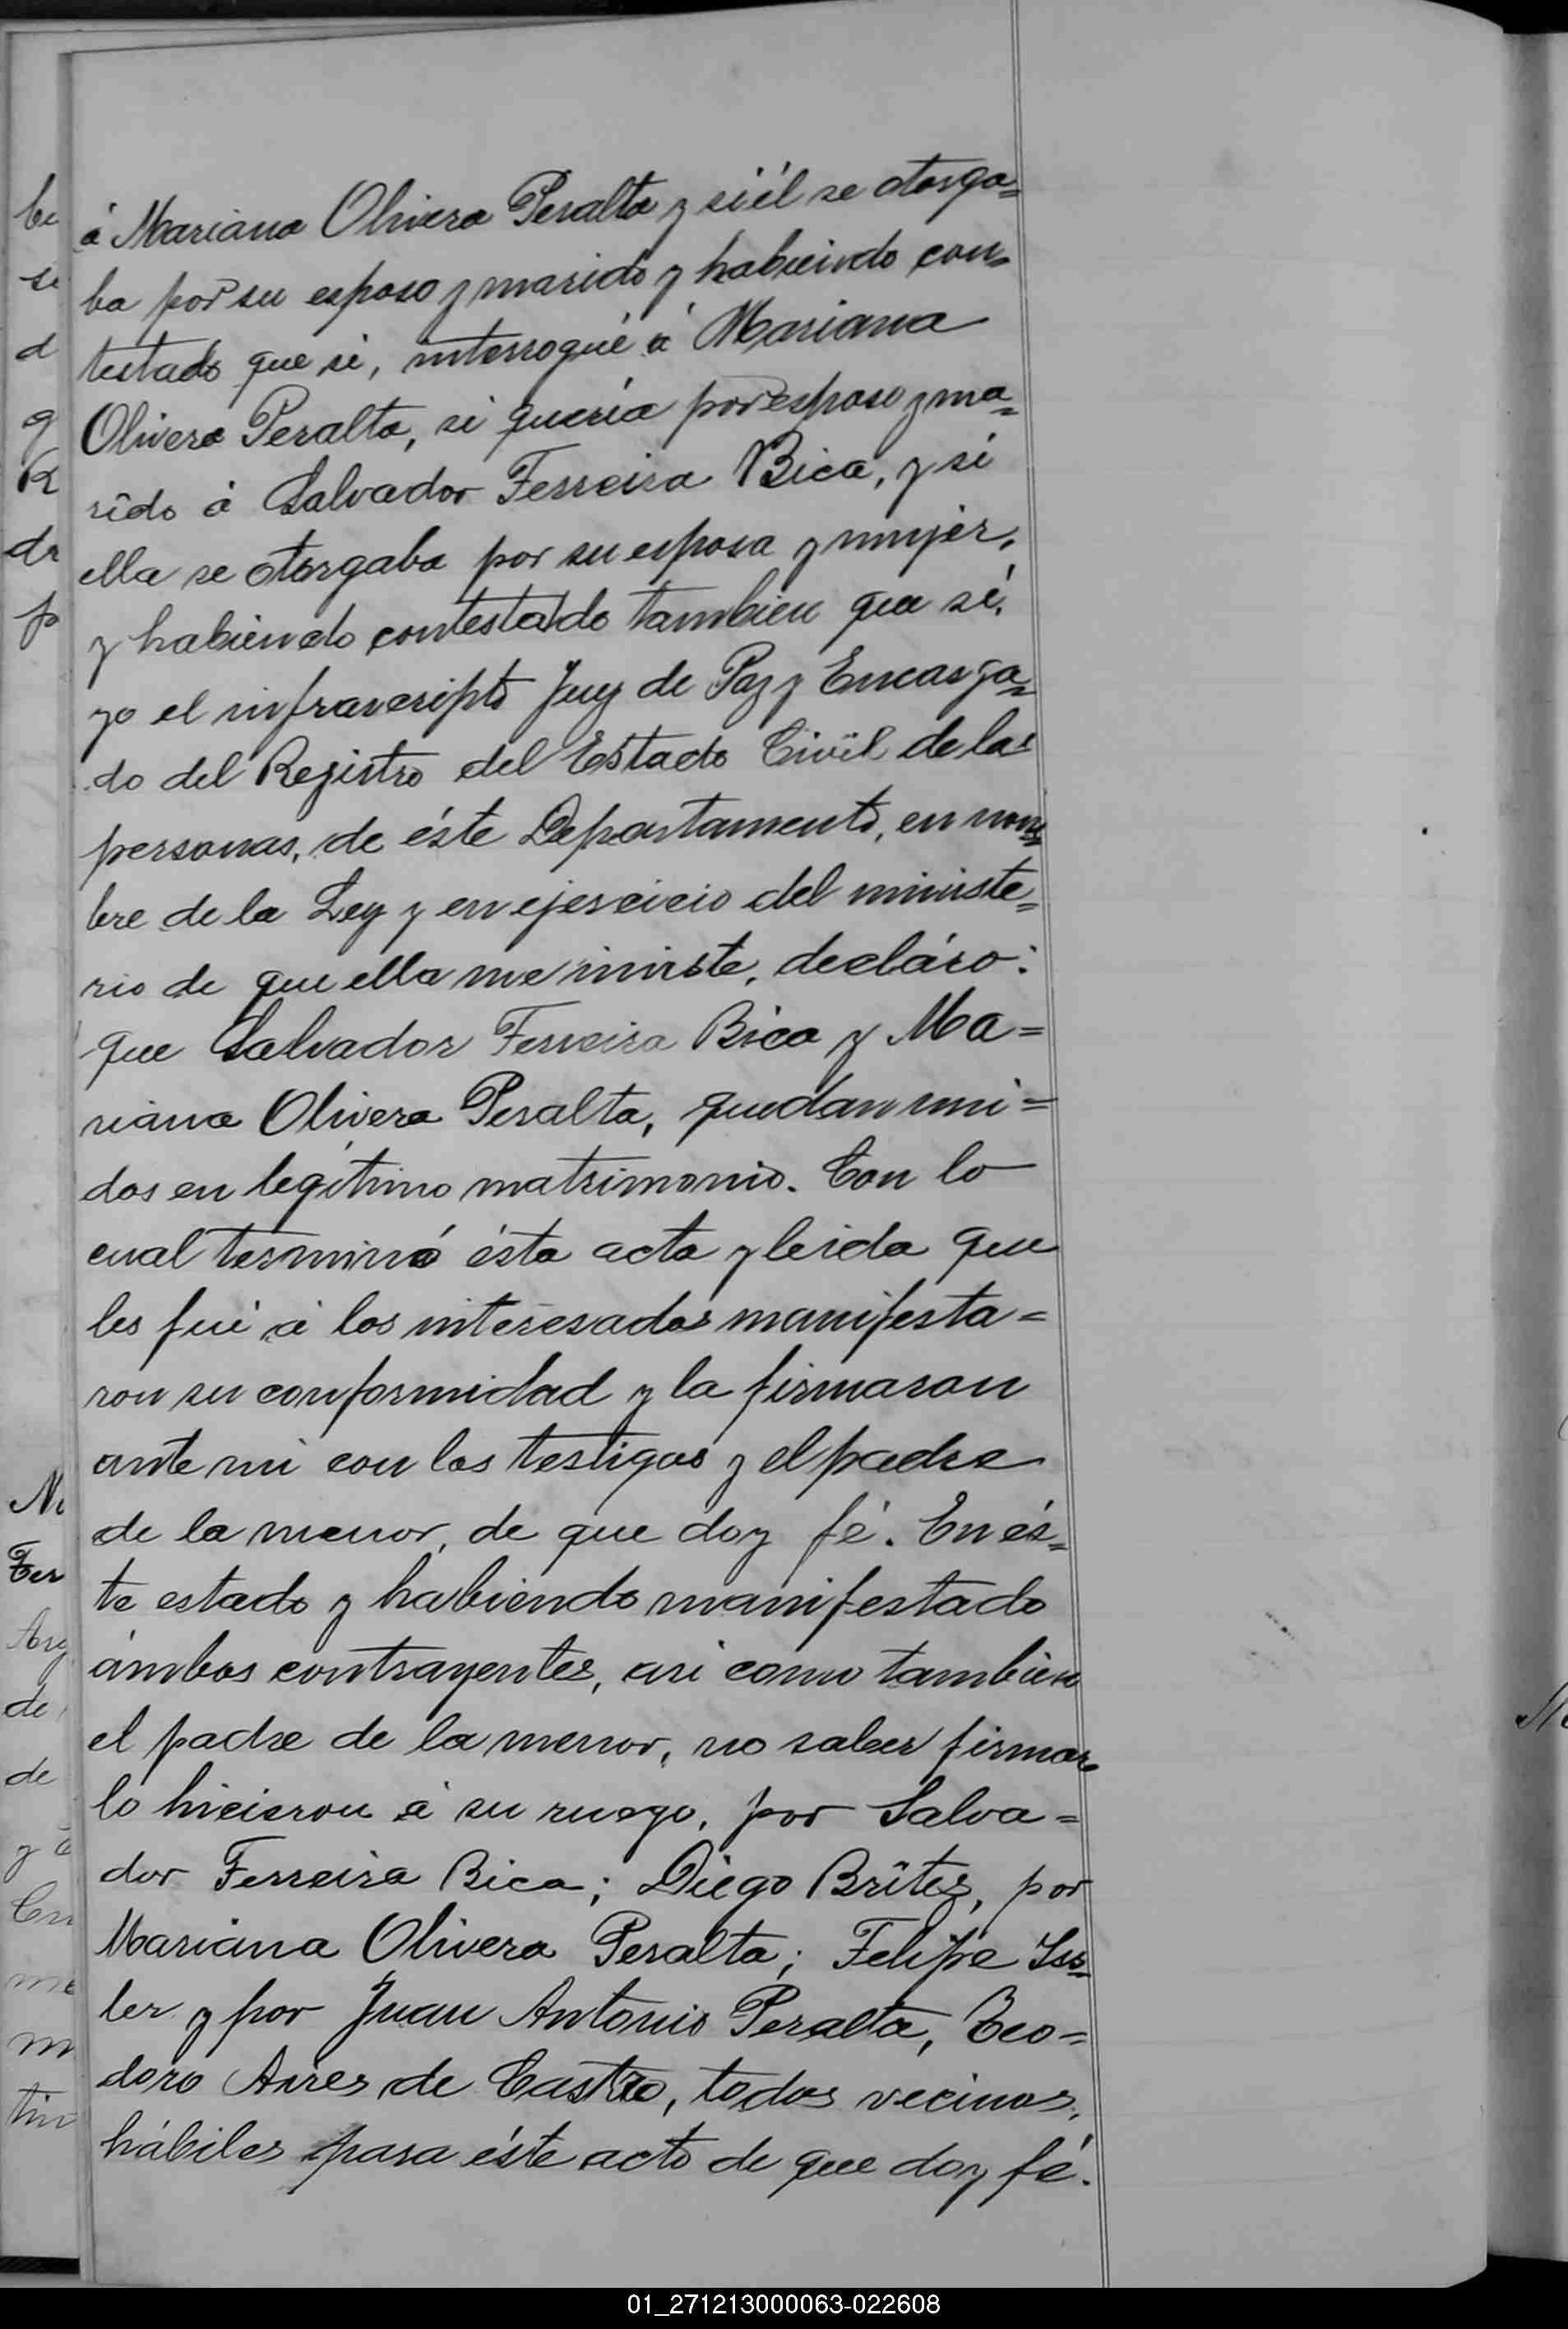 á Mariana Olivera Peralta y si él se otorga=
ba por su esposo y marido y habiendo con=
testado que si, interrogué á Mariana
Olivera Peralta, si quería por esposo y ma=
rido á Salvador Ferreira Bica, y si
ella se otorgaba por su esposa y mujer,
y habiendo contestado tambien que sí,
yo el infrascripto Juez de Paz y Encarga=
do del Registro del Estado Civil de las
personas, de éste Departamento, en nom=
bre de la Ley y en ejercicio del ministe=
rio de que ella me inviste, decláro:
que Salvador Ferreira Bica y Ma=
riana Olivera Peralta, quedan uni=
dos en legítimo matrimonio. Con lo
cual terminó ésta acta y leida que
les fué á los interesados manifesta=
ron su conformidad y la firmaron
ante mi con los testigos y el padre
de la menor, de que doy fé. En és=
te estado y habiendo manifestado
ámbos contrayentes, asi como tambien
el padre de la menor, no saber firmar
lo hicieron á su ruego, por Salva=
dor Ferreira Bica; Diego Brítez, por
Mariana Olivera Peralta; Felipe Iss=
ler y por Juan Antonio Peralta, Teo=
doro Aires de Castro, todos vecinos,
hábiles para éste acto de que doy fé.
01_271213000063-022608